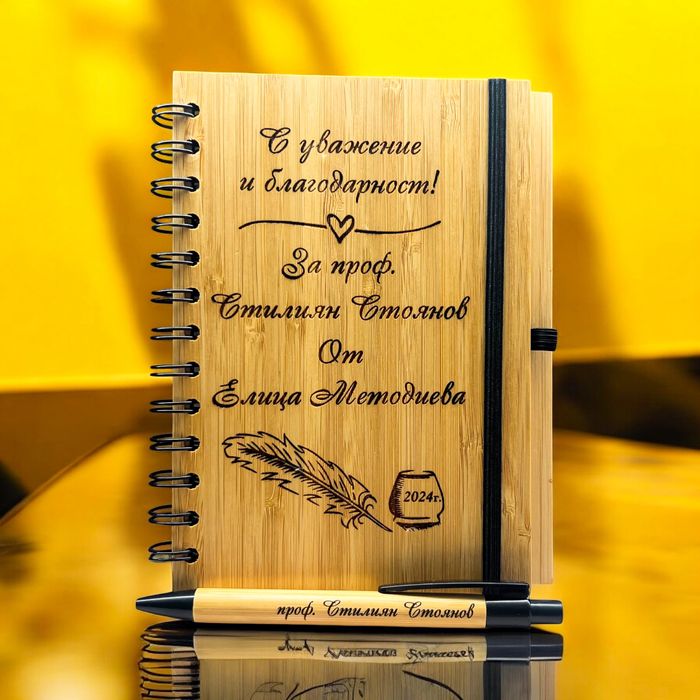 С уважение
и благодарност!
За проф.
Стилиян Стоянов
От
Елица Методиева
2024г.
проф. Стилиян Стоянов